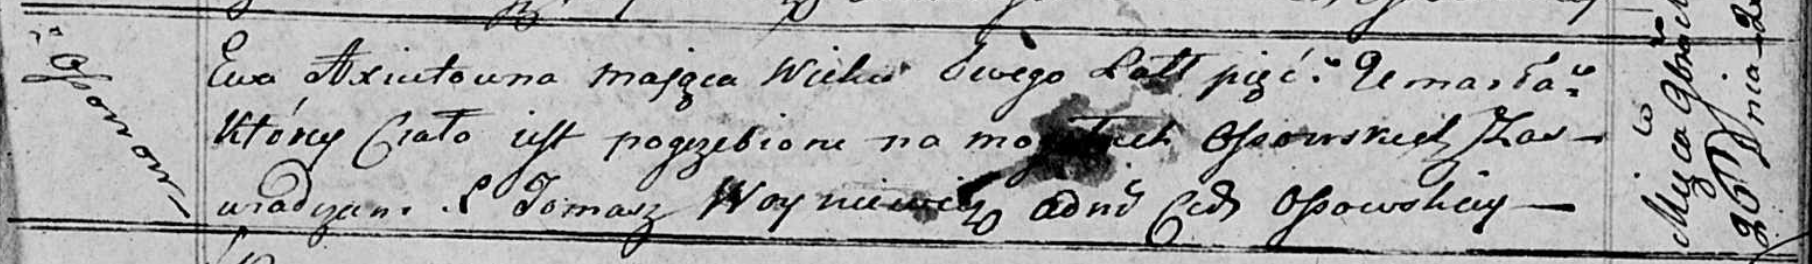 Osowo
Ewa Axiutowna maiąca Wieku Swego Latt pięć. Umarła.
Który Ciało jest pogrzebione na mogiłkach Ossowskich Zas-
wiadczam. X Tomasz Woyniewicz Admʳ Cer Ossowskiey —
Mięca Gbra
26 Dnia